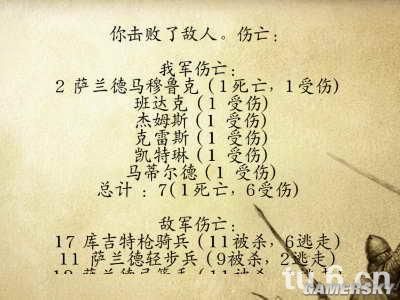 你击败了敌人。伤亡:
我军伤亡:
2 萨兰德马穆鲁克 (1死亡, 1受伤)
班达克 (1 受伤)
杰姆斯 (1 受伤)
克雷斯 (1 受伤)
凯特琳 (1 受伤)
马蒂尔德 (1 受伤)
总计 : 7(1死亡, 6受伤)
敌军伤亡:
17 库吉特枪骑兵 (11被杀, 6逃走)
11 萨兰德轻步兵 (9被杀, 2逃走)
tu.6.cn
GAMERSKY